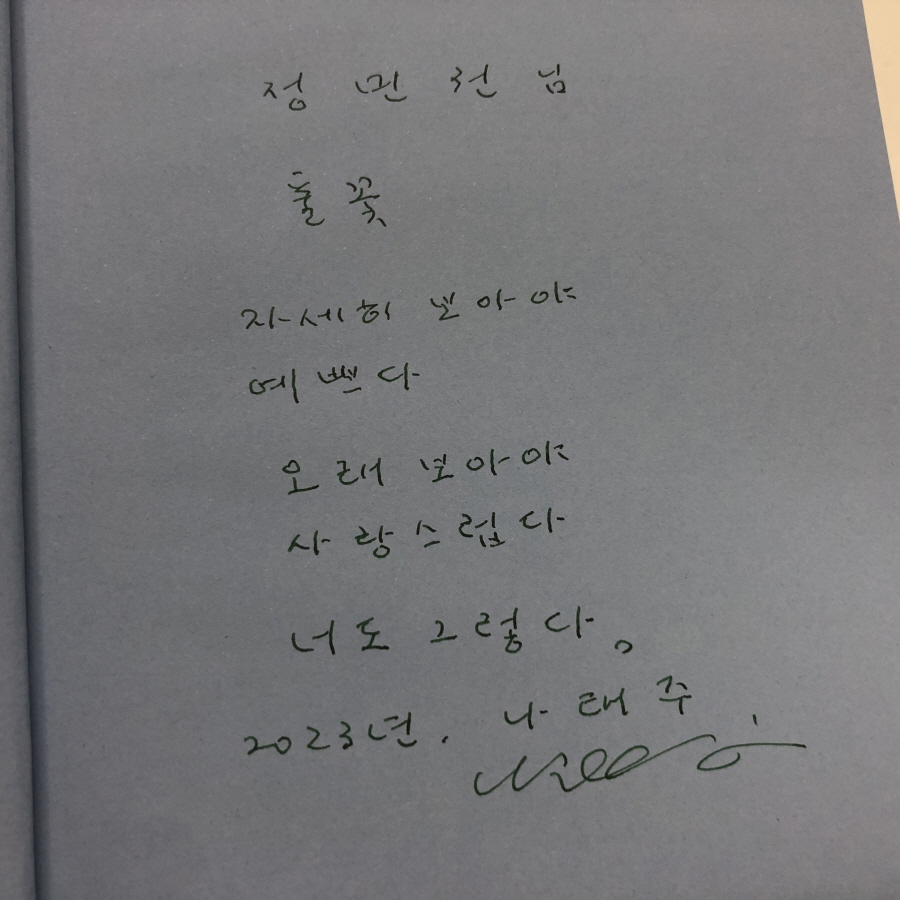 정 민 님
풀꽃
자세히 보아야
예쁘다
오래 보아야
사랑스럽다
너도 그렇다。
2023년. 나태주